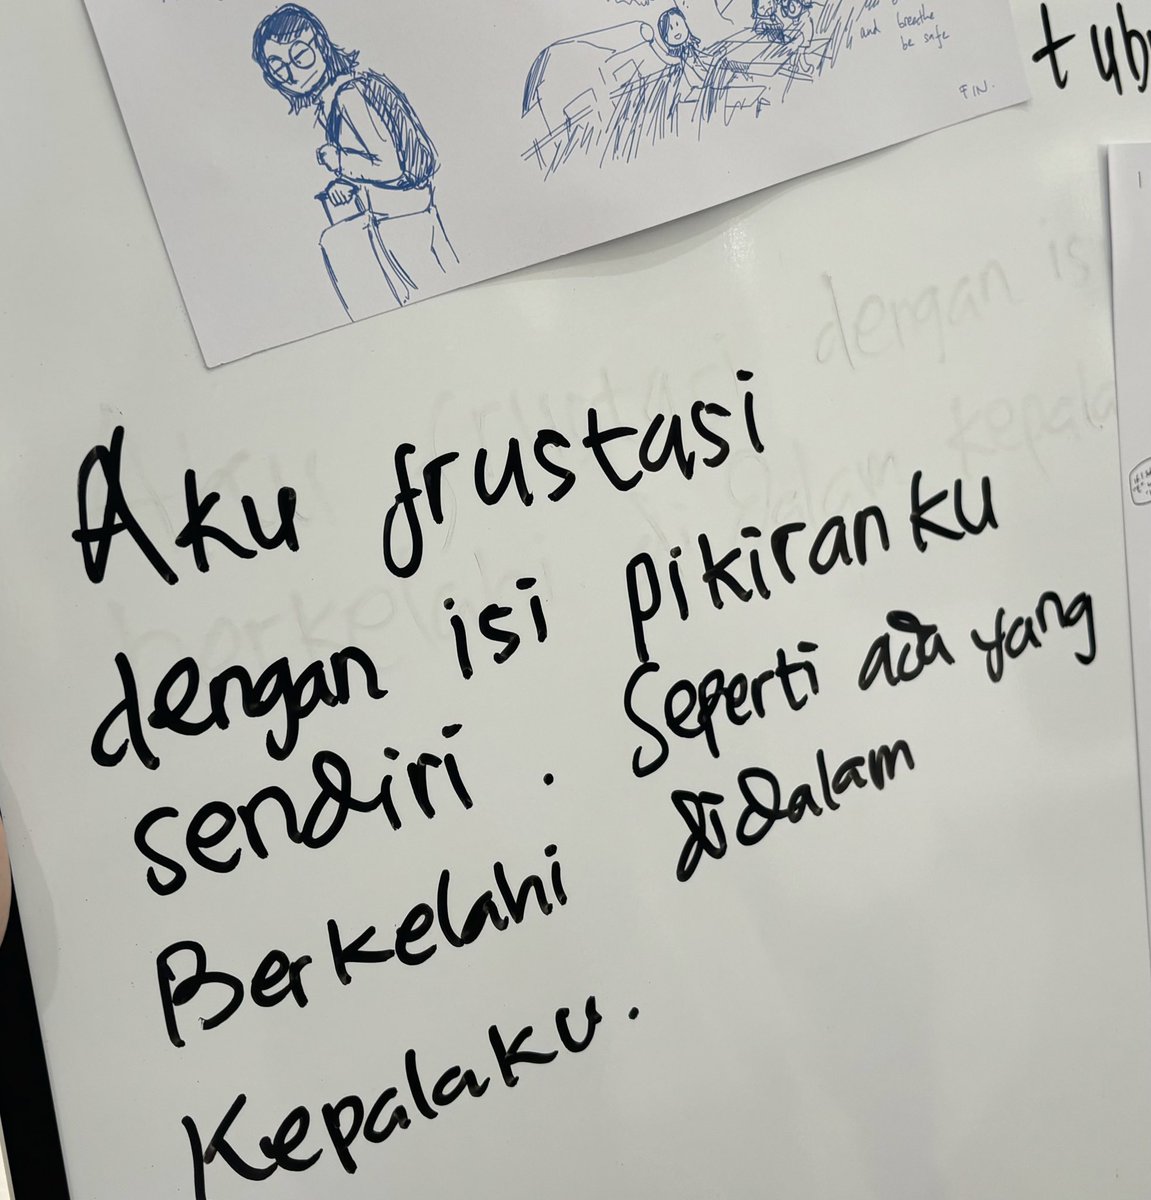 and breathe
be safe
FIN.
tub
Aku frustasi
dengan isi pikiranku
sendiri. Seperti ada yang
Berkelahi didalam
Kepalaku.
dengan isi
kepala